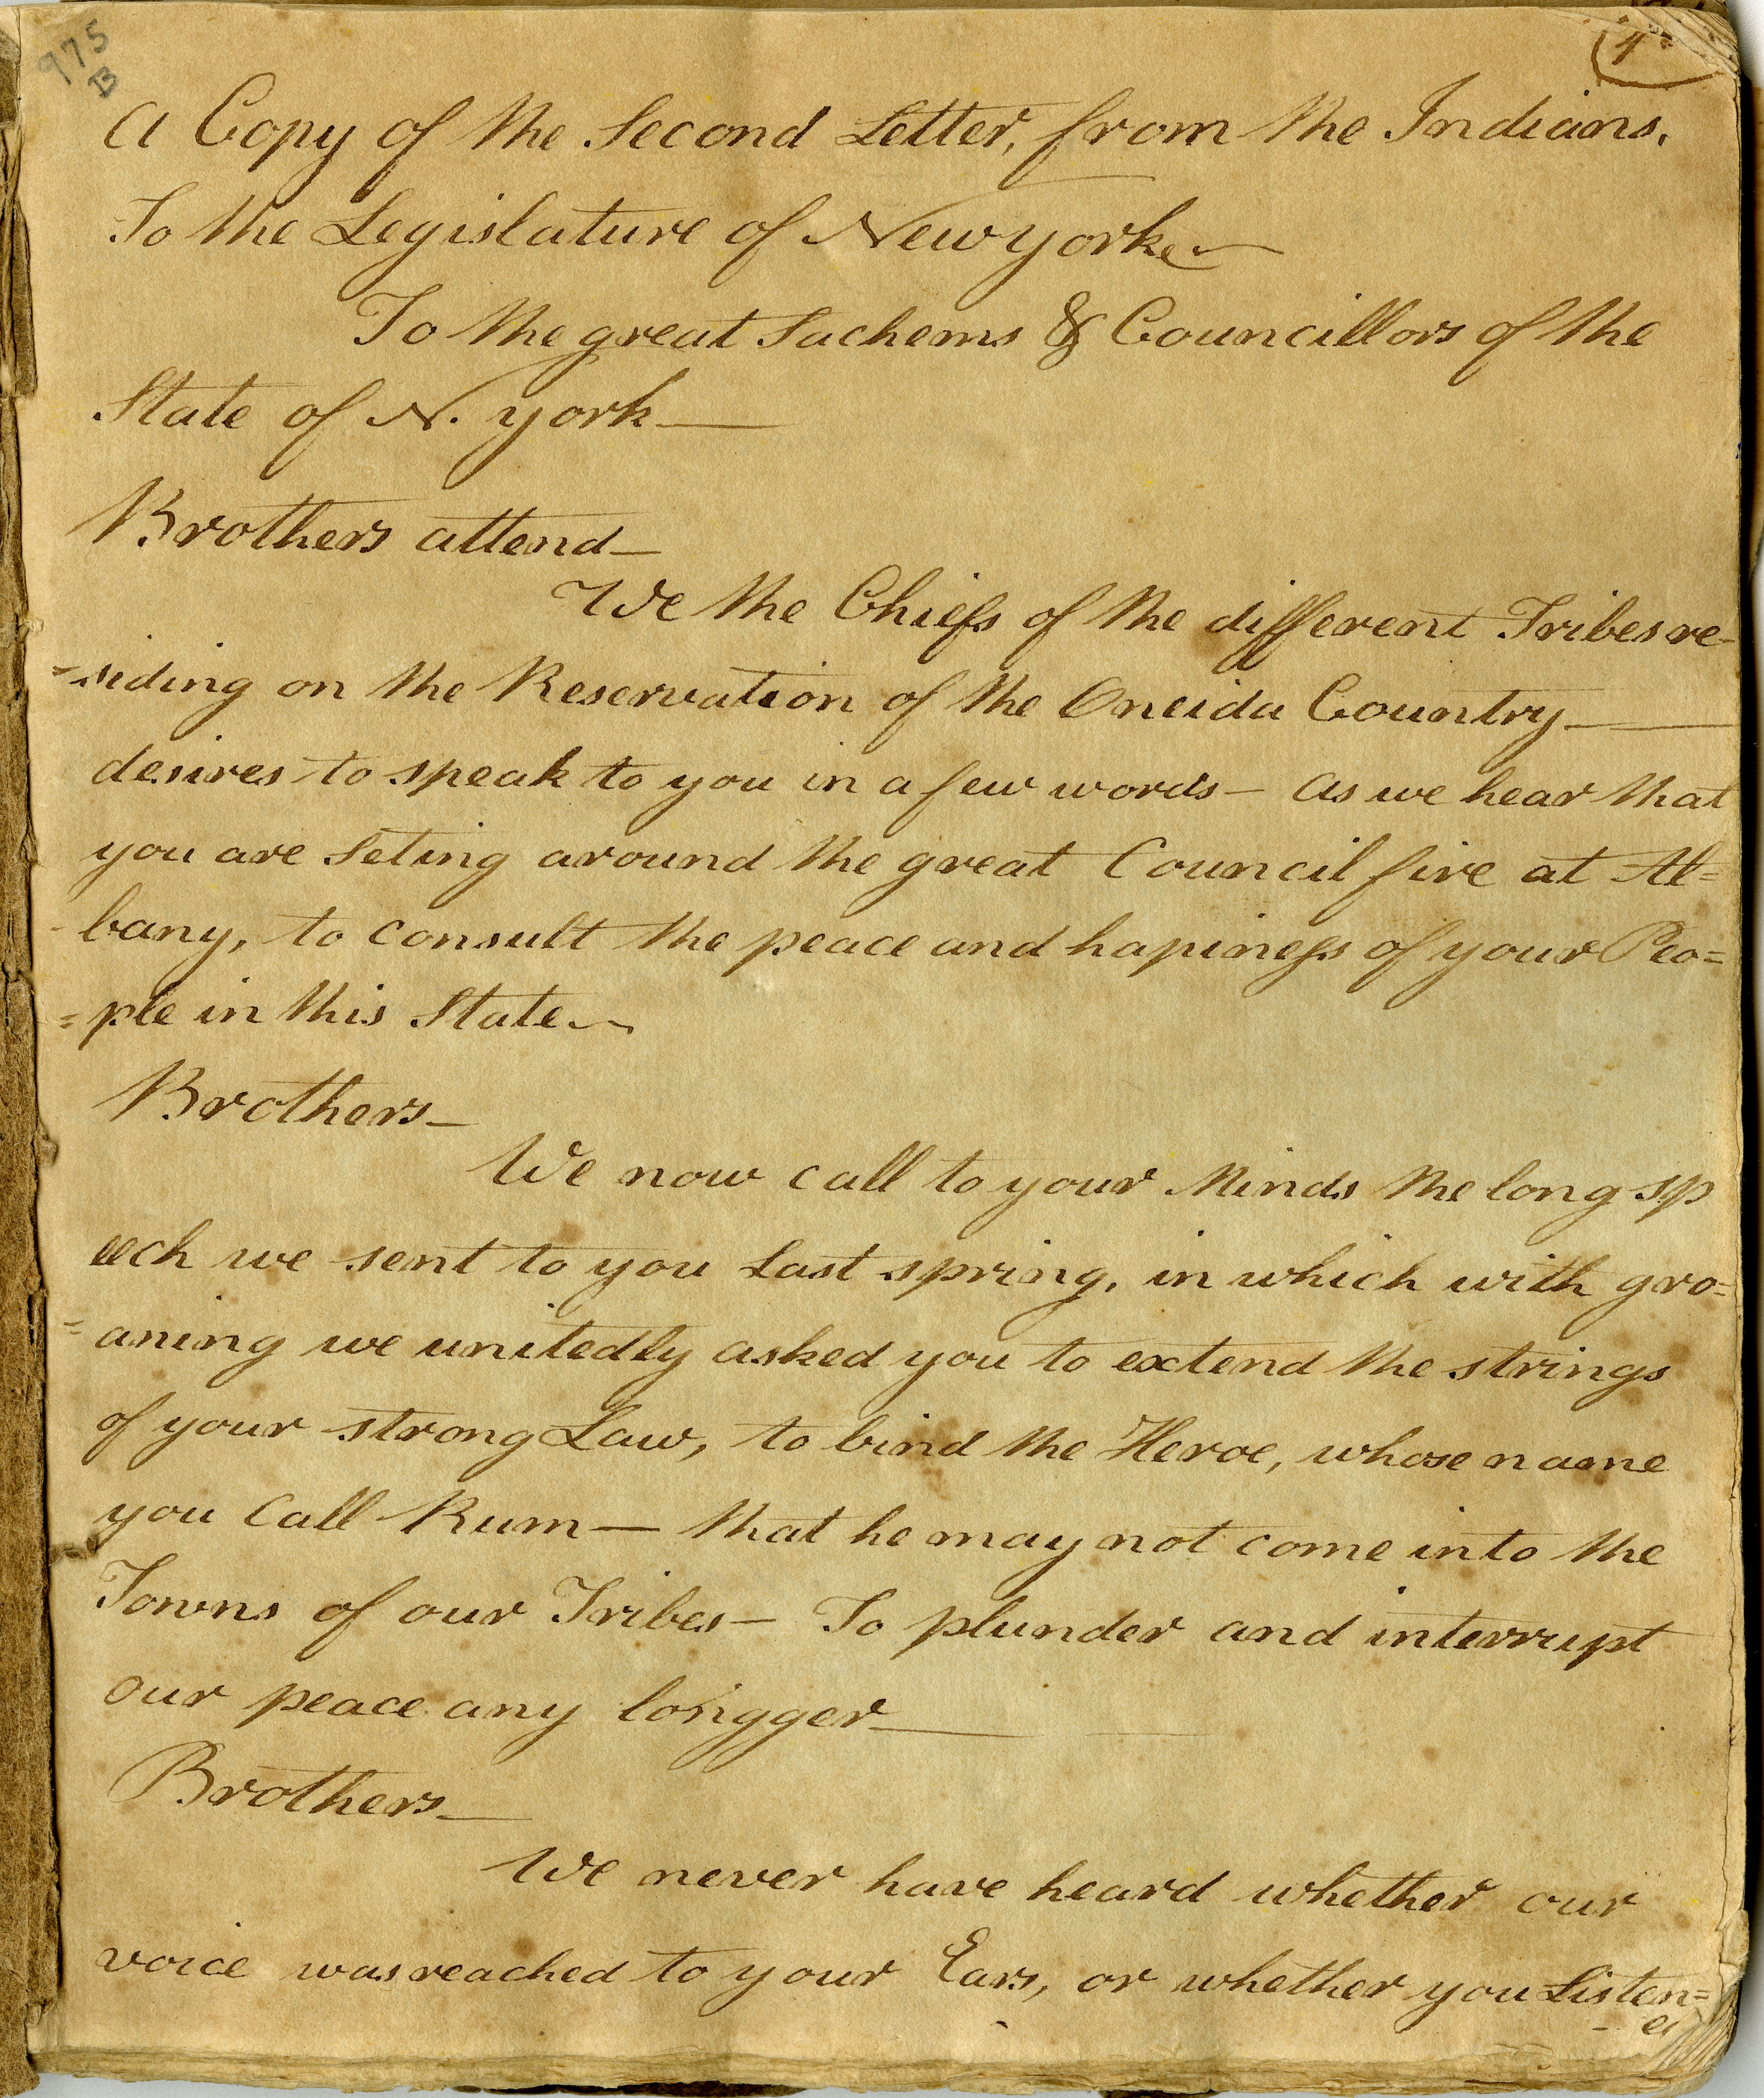 975
B
4
A Copy of the Second Letter, from the Indians.
To the Legislature of Newyork
To the great Sachems & Councillors of the
State of N. york —
Brothers attend —
We the Chiefs of the different Tribes re-
=siding on the Reservation of the Oneida Country —
desires to speak to you in a few words — as we hear that
you are Seting around the great Council fire at Al=
bany, to consult the peace and hapiness of your Peo=
=ple in this State —
Brothers —
We now call to your Minds the long sp
eech we sent to you Last spring, in which with gro=
=aning we unitedly asked you to extend the strings
of your strong Law, to bind the Heroe, whose name
you Call Rum — that he may not come into the
Towns of our Tribes — To plunder and interrupt
our peace any longger —
Brothers —
We never have heard whether our
voice was reached to your Ears, or whether you Listen=